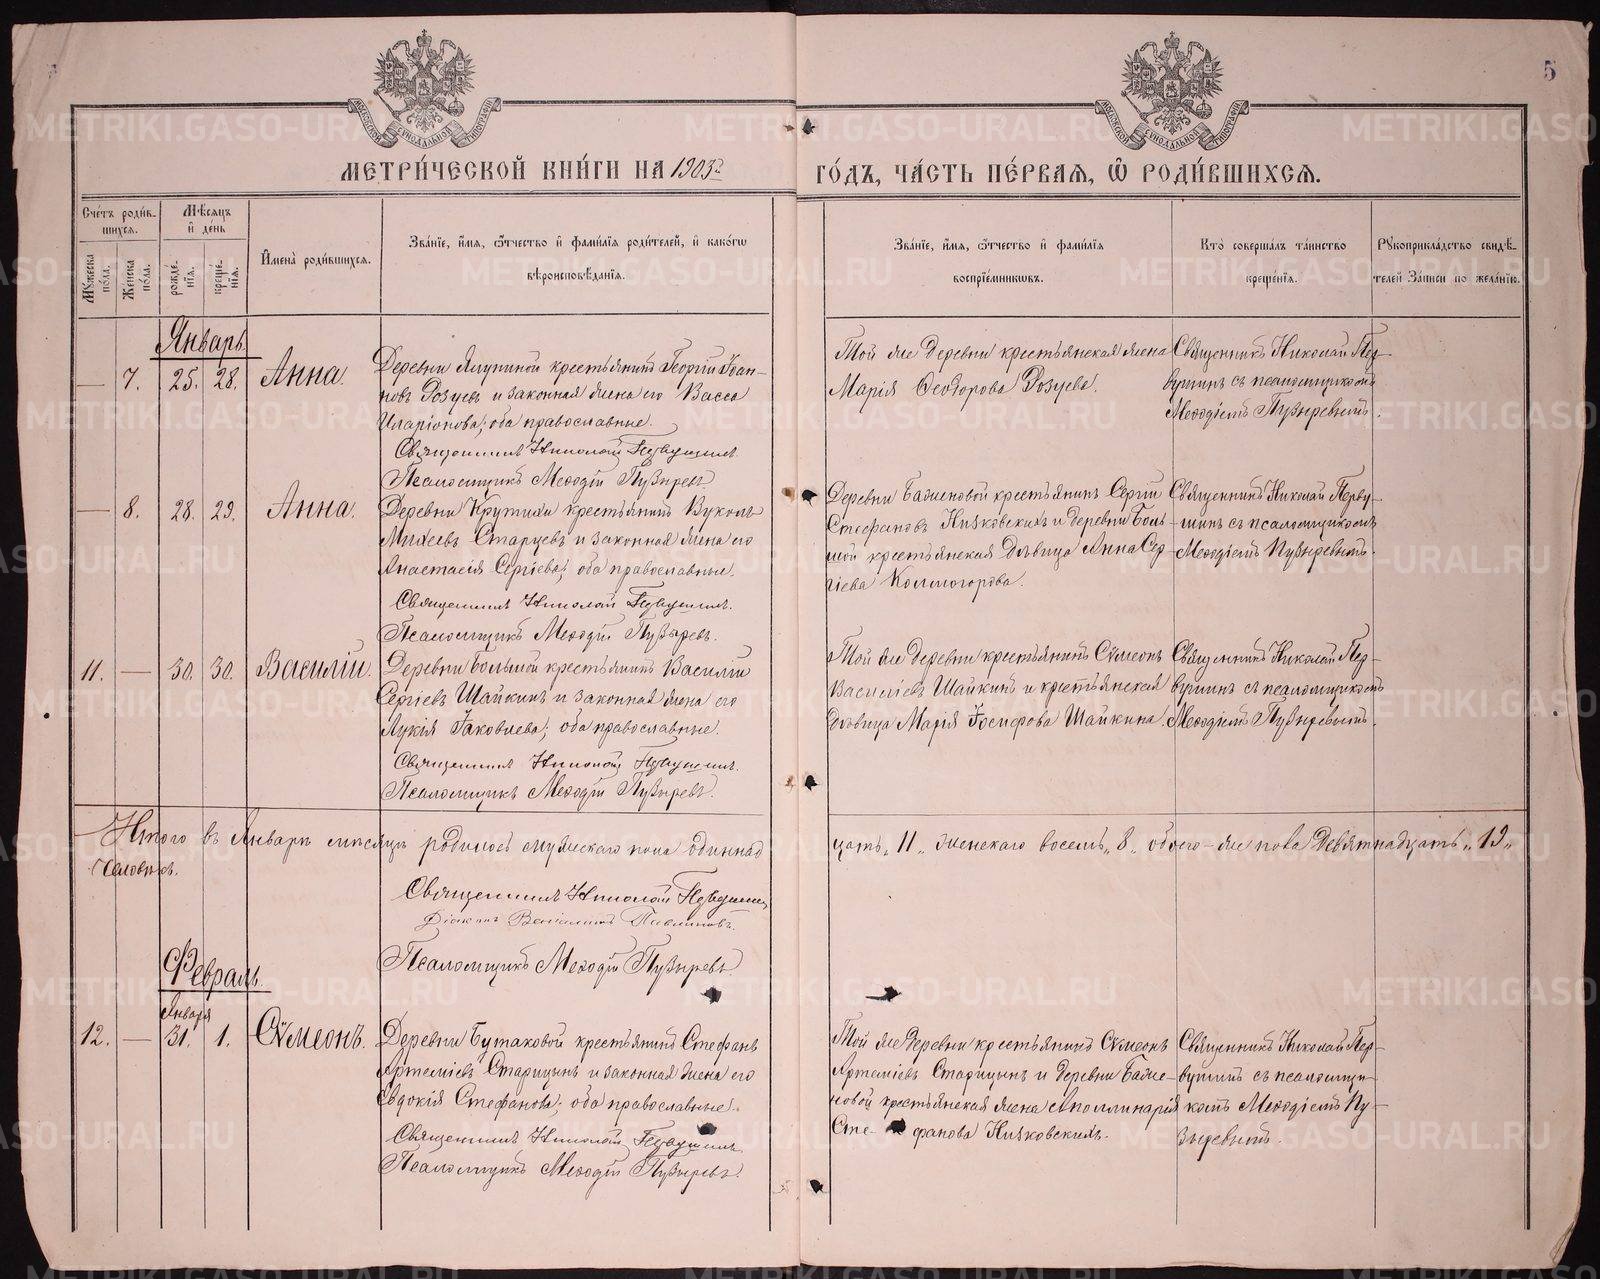 5
МОСКОВСКОЙ СѴНОДАЛЬНОЙ ТИПОГРАФІИ
МОСКОВСКОЙ СѴНОДАЛЬНОЙ ТИПОГРАФІИ
МЕТРИ́ЧЕСКОЙ КНИ́ГИ НА 1903 го́дъ, ча́сть пе́рваѧ, ѡ҆ роди́вшихсѧ.
Сче́тъ роди́вшихсѧ.
Мꙋ́жеска по́ла.
Же́нска по́ла.
Мѣ́сѧцъ и҆ де́нь
рожде́нїѧ.
креще́нїѧ.
И҆мена̀ роди́вшихсѧ.
Зва́нїе, и҆́мѧ, ѻ҆́тчество и҆ фами́лїѧ роди́телей, и҆ како́гѡ
вѣроисповѣ́данїѧ.
Зва́нїе, и҆́мѧ, ѻ҆́тчество и҆ фами́лїѧ
воспрїе́мникѡвъ.
Кто̀ соверша́лъ та́инство
креще́нїѧ.
Рꙋкоприкла́дство свидѣ́телей за́писи по жела́нїю.
Январь
— 7. 25. 28. Анна.
Деревни крестьянинъ Георгій Іоан-
новъ Розуевъ и законная жена его Васса
Иларіонова; оба православные.
Священникъ Николай Первушинъ.
Псаломщикъ Меѳодій Пузыревъ.
Той же деревни крестьянская жена
Марія Ѳеодорова Розуева.
Священникъ Николай Пер-
вушинъ съ псаломщикомъ
Меѳодіемъ Пузыревымъ.
— 8. 28. 29. Анна.
Деревни Крутихи крестьянинъ Вуколъ
Михеевъ Старцевъ и законная жена его
Анастасія Сергіева; оба православные.
Священникъ Николай Первушинъ.
Псаломщикъ Меѳодій Пузыревъ.
Деревни Баженовой крестьянинъ Сергій
Стефановъ Нижковскихъ и деревни Боль-
шой крестьянская дѣвица Анна Сер-
гіева Колмогорова.
Священникъ Николай Перву-
шинъ съ псаломщикомъ
Меѳодіемъ Пузыревымъ.
11. — 30. 30. Василій.
Деревни Большой крестьянинъ Василій
Сергіевъ Шайкинъ и законная жена его
Лукія Іаковлева; оба православные.
Священникъ Николай Первушинъ.
Псаломщикъ Меѳодій Пузыревъ.
Той же деревни крестьянинъ Сѵмеонъ
Василіевъ Шайкинъ и крестьянская
дѣвица Марія Іосифова Шайкина.
Священникъ Николай Пер-
вушинъ съ псаломщикомъ
Меѳодіемъ Пузыревымъ.
Итого въ Январѣ мѣсяцѣ родилось мужескаго пола одиннад
цать „11„ женскаго восемь „8„ обоего-же пола девятнадцать „19„
человѣкъ.
Священникъ Николай Первушинъ
Діаконъ Веніаминъ
Псаломщикъ Меѳодій Пузыревъ.
Февраль
Января
12. — 31. 1. Сѵмеонъ.
Деревни Бутаковой крестьянинъ Стефанъ
Артеміевъ Старицынъ и законная жена его
Евдокія Стефанова; оба православные.
Священникъ Николай Первушинъ.
Псаломщикъ Меѳодій Пузыревъ.
Той же деревни крестьянинъ Сѵмеонъ
Артеміевъ Старицынъ и деревни Баже-
новой крестьянская жена Аполлинарія
Сте- фанова Нижковскихъ.
Священникъ Николай Пер-
вушинъ съ псаломщи-
комъ Меѳодіемъ Пу-
зыревымъ.
METRIKI.GASO-URAL.RU